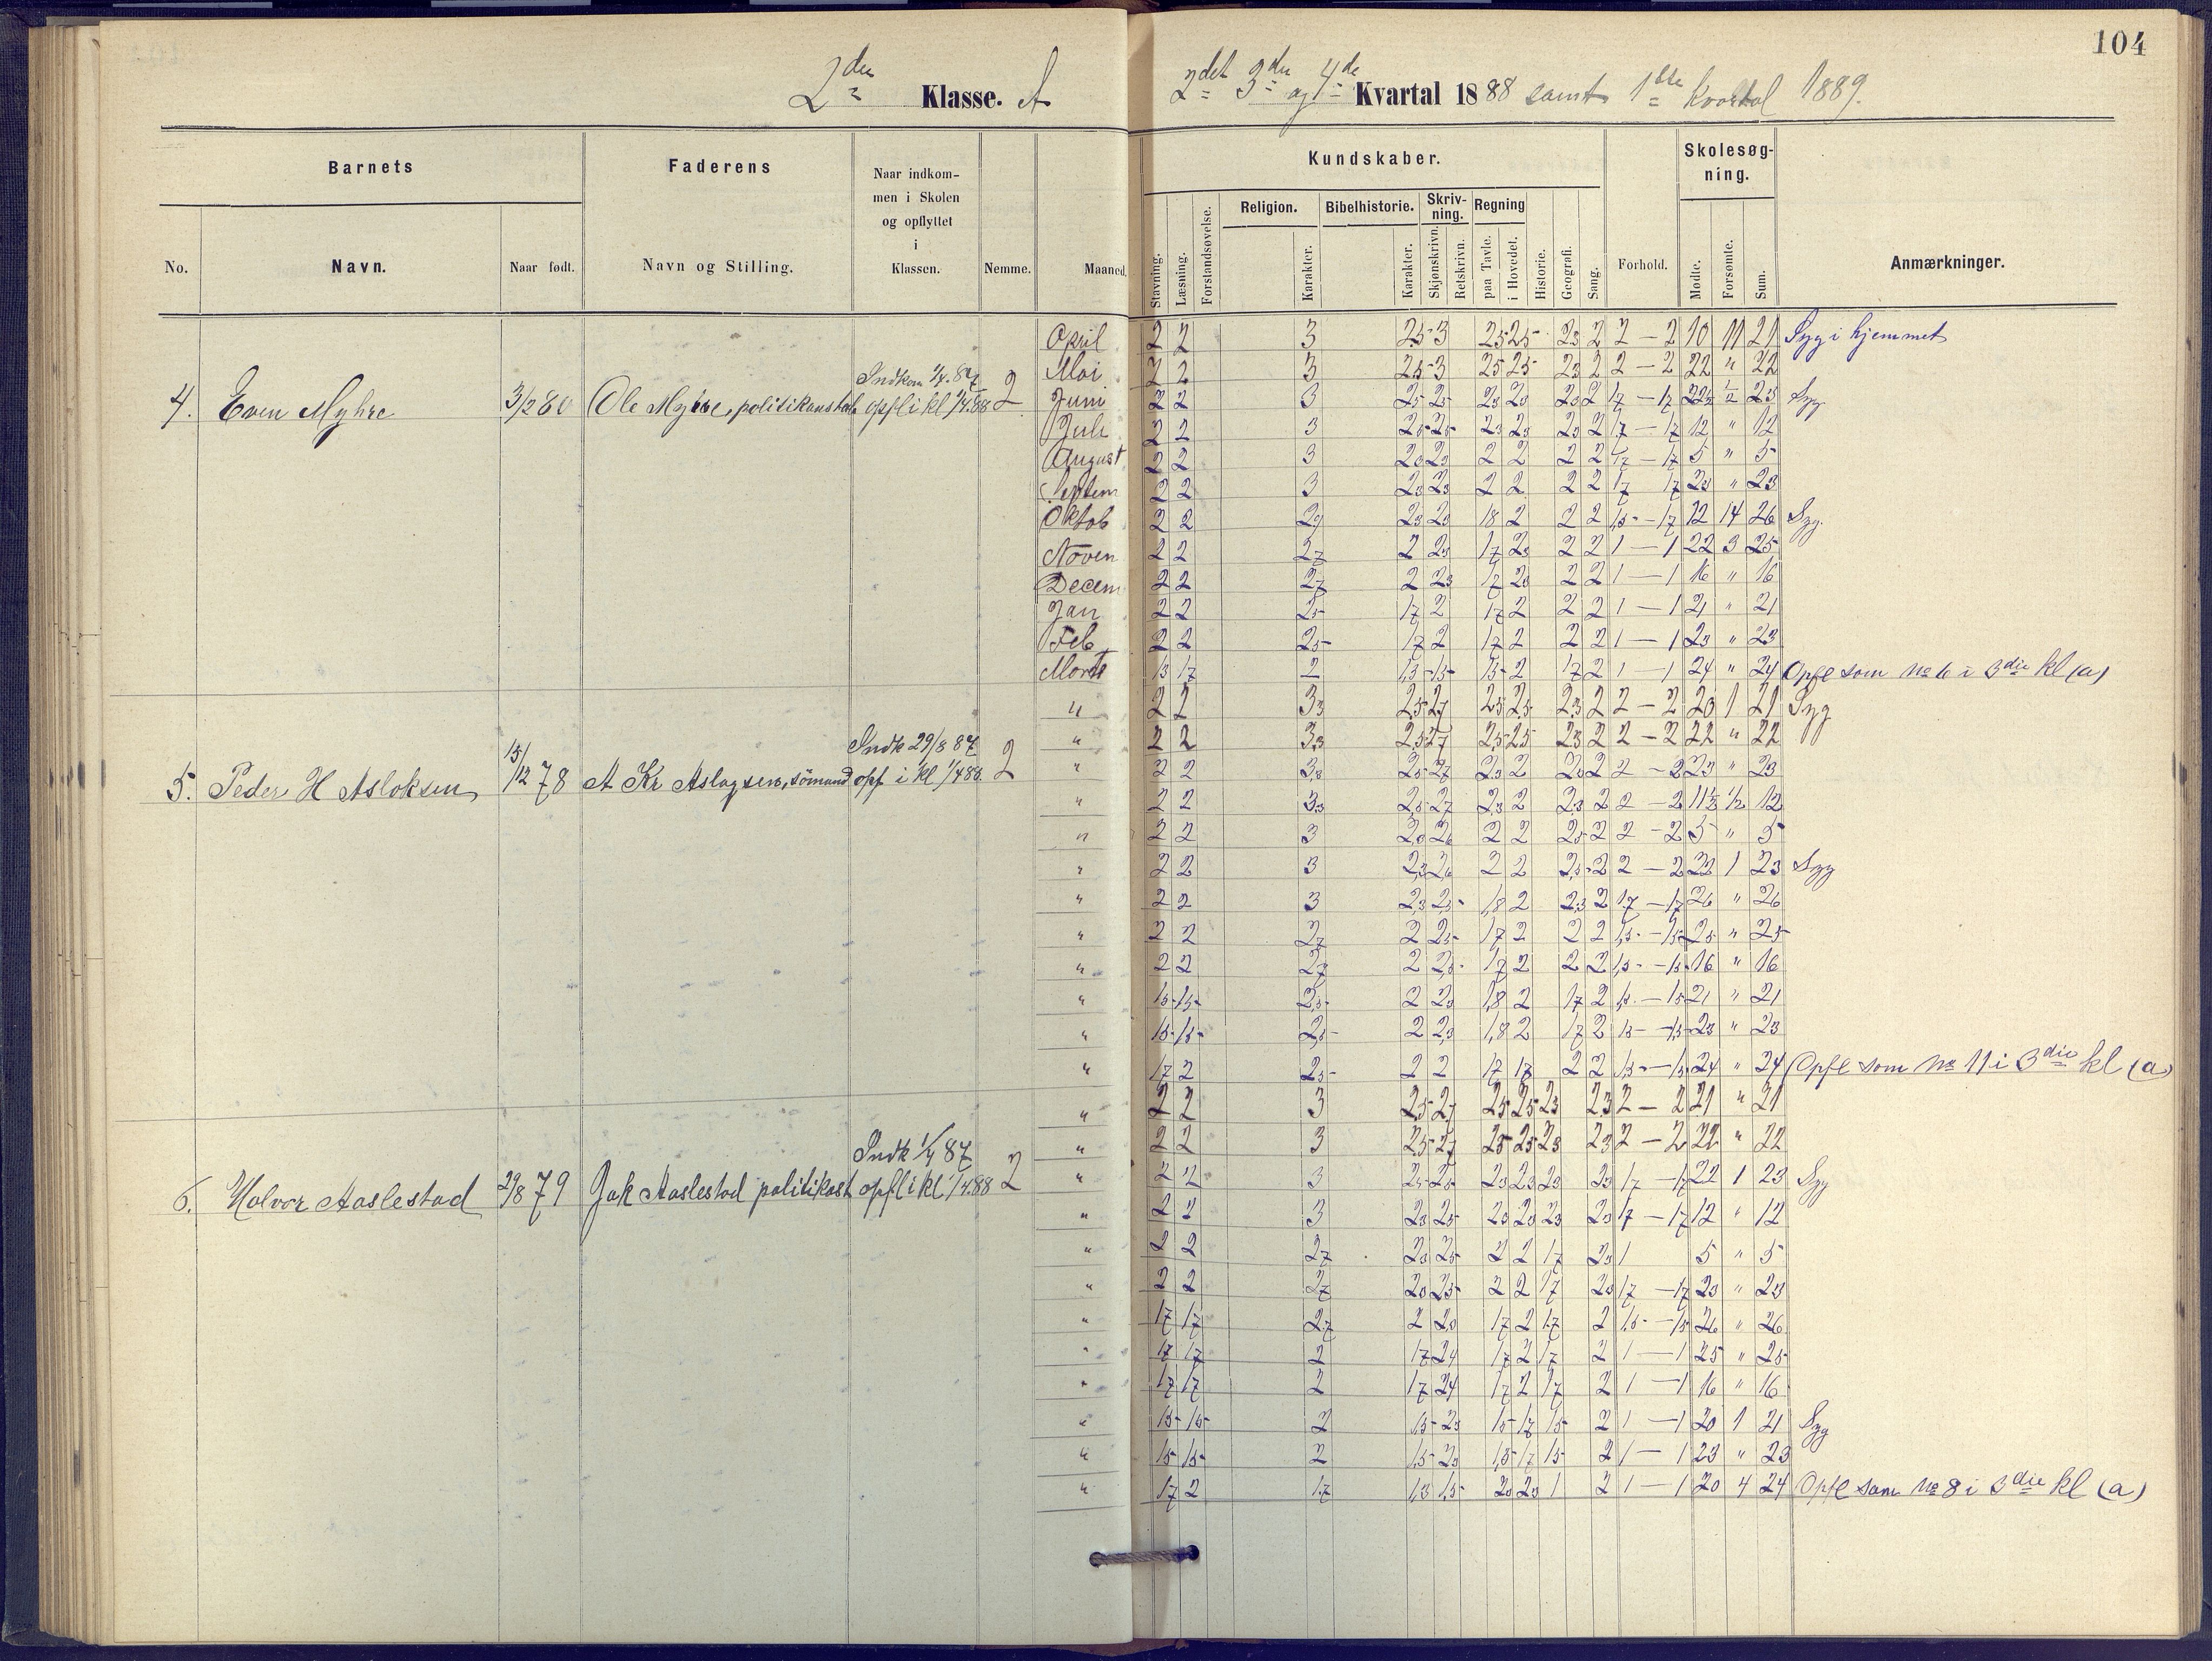 104
2den Klasse. A
2det 3die og 4de Kvartal 1888 samt 1ste Kvartal 1889.
Barnets
Faderens
Naar indkommen i Skolen og opflyttet i Klassen.
Nemme.
Maaned.
Kundskaber.
Forhold.
Skolesøgning.
Anmærkninger.
No.
Navn.
Naar født.
Navn og Stilling.
Stavning.
Læsning.
Forstandsøvelse.
Religion.
Karakter.
Bibelhistorie.
Karakter.
Skrivning.
Skjønskrivn.
Retskrivn.
Regning
paa Tavle.
i Hovedet.
Historie.
Geografi.
Sang.
Mødte.
Forsømte.
Sum.
4. Even Myhre 3/2 80 Ole Myhre, politikonstab Indkom 1/4. 87 opfl i kl 1/4.88 2
April 2 2 3 2,5 3 2,5 2,5 2,3 2 2 — 2 10 11 21 Syg i hjemmet
Mai 2 2 3 2,5 3 2,5 2,5 2,3 2 2 — 2 22 " 22
Juni 2 2 3 2,5 2,5 2,3 2,3 2,3 2 1,7 — 1,7 22½ ½ 23 Syg
Juli 2 2 3 2,5 2,5 2,3 2,3 2,3 2 1,7 — 1,7 12 " 12
August 2 2 3 2,3 2,3 2 2 2 2 1,7 — 1,7 5 " 5
Septem 2 2 3 2,3 2,3 2 2 2 2 1,7 1,7 23 " 23
Oktob 2 2 2,9 2,3 2,3 1,8 2 2 2 1,5 — 1,7 12 14 26 Syg.
Noven 2 2 2,7 2 2,3 1,7 2,3 2 2 1 — 1 22 3 25
Decem 2 2 2,7 2 2,3 1,7 2,3 2 2 1 — 1 16 " 16
Jan 2 2 2,5 1,7 2 1,7 2 2 2 1 — 1 21 " 21
Feb 2 2 2,5 1,7 2 1,7 2 2 2 1 — 1 23 " 23
Marts 1,5 1,7 2 1,5 1,5 1,5 2 1,7 2 1 — 1 24 " 24 Opfl som No 6 i 3die kl (a)
5. Peder H Asloksen 15/12 78 A Kr Aslagsen, sömand Indk 29/8 87 opf i kl 1/4 88. 2
" 2 2 3,3 2,5 2,7 2,5 2,5 2,3 2 2 — 2 20 1 21 Syg
" 2 2 3,3 2,5 2,7 2,5 2,5 2,3 2 2 — 2 22 " 22
" 2 2 3,3 2,5 2,7 2,3 2 2,3 2 2 — 2 23 " 23
" 2 2 3,3 2,5 2,7 2,3 2 2,3 2 2 — 2 11½ ½ 12
" 2 2 3 2,3 2,6 2 2 2,5 2 2 — 2 5 " 5
" 2 2 3 2,3 2,6 2 2 2,5 2 2 — 2 22 1 23 Syg
" 2 2 3 2,3 2,5 1,8 2 2,3 2 1,7 — 1,7 26 " 26
" 2 2 2,7 2 2,5 1,7 2 2 2 1,5 — 1,5 25 " 25
" 2 2 2,7 2 2,5 1,7 2 2 2 1,5 — 1,5 16 " 16
" 1,5 1,5 2,5 2 2,3 1,8 2 1,7 2 1,5 — 1,5 21 " 21
" 1,5 1,5 2,5 2 2,3 1,8 2 1,7 2 1,5 — 1,5 23 " 23
" 1,7 2 2,5 2 2 1,7 1,7 2 2 1,5 — 1,5 24 " 24 Opfl som No 11 i 3die kl (a)
6. Halvor Aaslestad 29/8 79 Jak Aaslestad politikost Indk 1/4 87 opfl i kl 1/4.88 2
" 2 2 3 2,5 2,7 2,5 2,5 2,3 2,3 2 — 2 21 " 21
" 2 2 3 2,5 2,7 2,5 2,5 2,3 2,3 2 — 2 22 " 22
" 2 2 3 2,5 2,5 2,3 2,3 2,3 2,3 1,7 — 1,7 22 1 23 Syg
" 2 2 3 2,3 2,5 2,3 2,3 2,3 2,3 1,7 — 1,7 12 " 12
" 2 2 2,7 2,3 2,5 2 2 1,7 2,3 1 5 " 5
" 2 2 2,7 2,3 2,5 2 2 1,7 2,3 1,7 — 1,7 23 " 23
" 1,7 1,7 2,7 2 2,3 1,7 2 1,7 2 1,5 — 1,5 26 " 26
" 1,7 1,7 2 1,7 2,4 1,7 2 1,7 2 1 — 1 25 " 25
" 1,7 1,7 2 1,7 2,4 1,7 2 1,7 2 1 — 1 16 " 16
" 1,5 1,5 2 1,5 2,3 1,5 1,7 1,5 2 1 — 1 20 1 21 Syg
" 1,5 1,5 2 1,5 2,3 1,5 1,7 1,5 2 1 — 1 23 " 23
" 1,7 2 1,7 1,3 1,5 2,3 2,3 1 2 1 — 1 20 4 24 Opfl som No 8 i 3die kl (a)